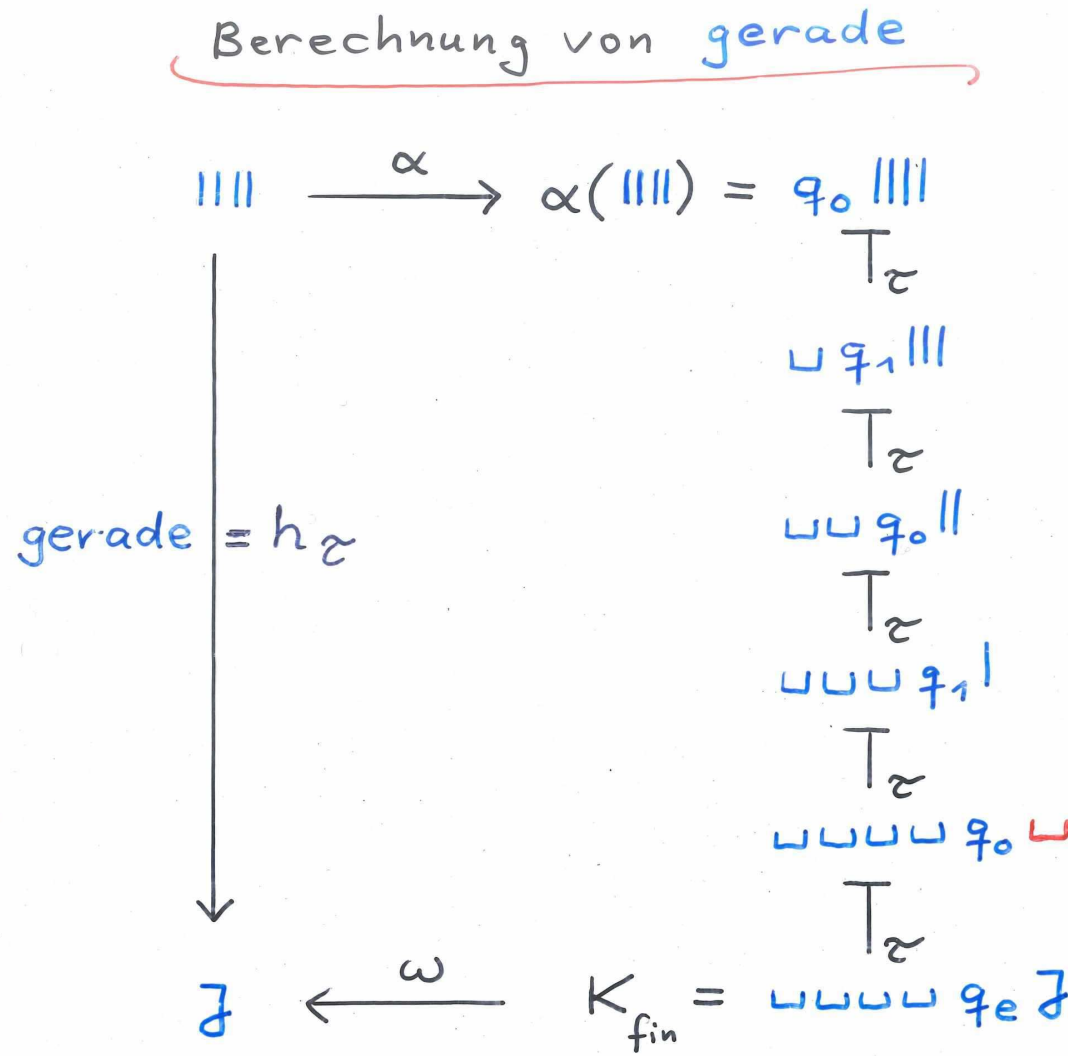 Berechnung von gerade
|||| α → α(||||) = q₀ ||||
⊤τ
⊔ q₁ |||
⊤τ
⊔⊔ q₀ ||
gerade = hτ
⊤τ
⊔⊔⊔ q₁ |
⊤τ
⊔⊔⊔⊔ q₀ ⊔
⊤τ
J ← ω K_fin = ⊔⊔⊔⊔ qₑ J